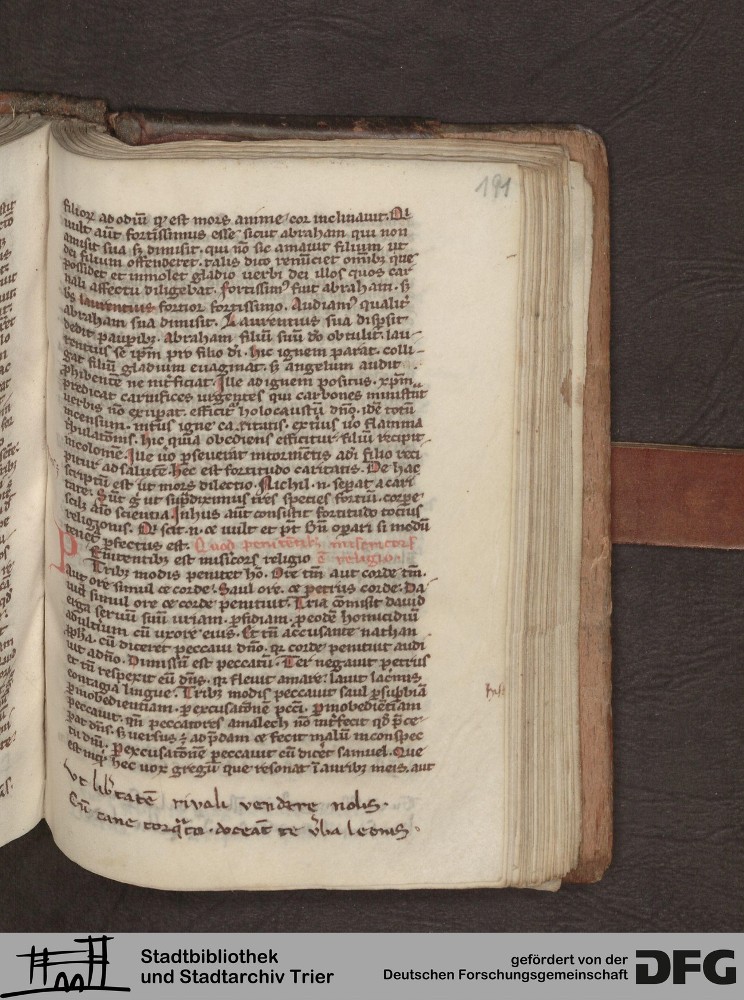 191
filioꝝ ad odiū qꝫ est mors anime cor inclinauit. Qͥ
uult aūt fortissimus esse sicut abraham qui non
amisit sua sꝫ dimisit. qui nō sic amauit filium ut
dei filium offenderet. talis dico renūciet omībꝫ que
possidet et inmolet gladio uerbi dei illos quos car
nali affectu diligebat. fortissimꝰ fuit abraham. sꝫ
bꝰ laurentius fortior fortissimo. Audiamꝰ qualiť
abraham sua dimisit. Laurentius sua disp̄sit
dedit paupibꝫ. Abraham filiū suū dō obtulit. lau-
rentius se ip̄m pro filio di. hic ignem parat. colli-
gat filiū gladium euaginat. sꝫ angelum audit
ꝓhibentē ne int̄ficiat. Ille ad ignem positus. xp̄m
predicat carnifices urgentes qui carbones ministrāt
uerbis nō extirpat. efficitͬ holocaustū dn̄o. idē totū
incensum. intus igne caritatis. extius uo flamma
tͥbulationis. hic quia obediens efficitur filiū recipit
incolomē. Ille uo pseuerat in tormētis adi filio reci
pitur ad salutē. hec est fortitudo caritatis. De hac
scriptū est ut mors dilectio. Nichil. n. sepat a cari
tate. Sūt g ut sup̄diximus tres species fortiū. corpe
scilꝫ aīo scientia. In hus aūt consistit fortitudo totius
religionis. Qͥ scit. n. ce uult et pt̄ bn̄ oꝑari si modū
tenet perfectus est. Quod penitentibꝫ misericors
Penitentibꝫ est misicors religio ē religio.
Tribꝫ modis penitet hō. Ore tm̄ aut corde tm̄.
aut ore simul ce corde. Saul ore. ce petrus corde. da
uid simul ore ce corde penituit. Tria cōmisit dauid
erga seruū suū uriam. ꝑfidiam. ꝓeodē homicidiū
adulterium cū uxore eius. Et tn̄ accusante nathan
ꝓpha. cū diceret peccaui dn̄o. qꝛ corde penituit audi
uit adn̄o. Dimissū est peccatū. Ter negauit petrus
et tn̄ respexit eū dn̄s. qꝛ fleuit amare. lauit lac̄mis
contagia lingue. Tribꝫ modis peccauit saul ꝑsupbiā
ꝑinobedientiam. ꝑ excusatōnē pcc̄i. ꝑinobediētiam
peccauit. qn̄ peccatores amalech nō int̄fecit qd̄ p̄ce
pat dn̄s. sꝫ uersus ꝫ ad p̄dam ce fecit malū in conspec
tu dn̄i. ꝑ excusatōnē peccauit cū dic̄et samuel. Que
est inqͥ hec uox gregū que resonat ī aurībꝫ meis. aut
Vt libͭtatē riuali uendere nolis.
Cū cane torqͣto. doceāt te v̄ba leonis.
Stadtbibliothek
und Stadtarchiv Trier
gefördert von der
Deutschen Forschungsgemeinschaft
DFG